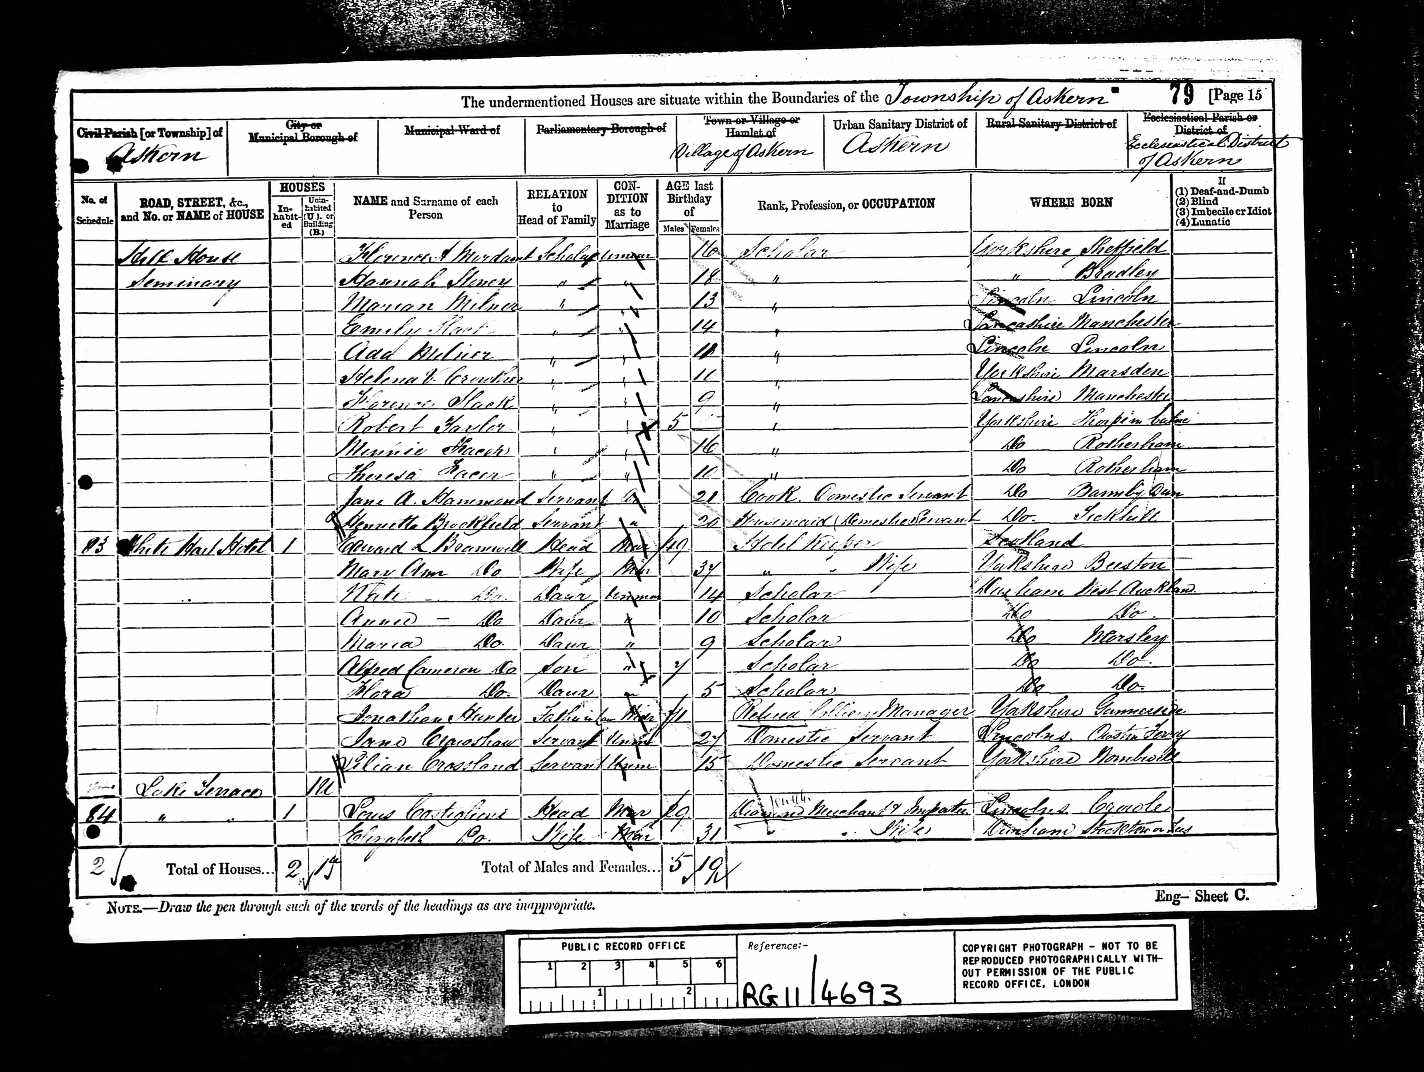 The undermentioned Houses are situate within the Boundaries of the Township of Askern 79 [Page 15
Civil Parish [or Township] of City or Municipal Borough of Municipal Ward of Parliamentary Borough of Town or Village or Hamlet of Urban Sanitary District of Rural Sanitary District of Ecclesiastical Parish or District of
Askern Village of Askern Askern Ecclesiastical District of Askern
No. of Schedule ROAD, STREET, &c., and No. or NAME of HOUSE HOUSES Inhabited Uninhabited (U.), or Building (B.) NAME and Surname of each Person RELATION to Head of Family CONDITION as to Marriage AGE last Birthday of Males Females Rank, Profession, or OCCUPATION WHERE BORN If (1) Deaf-and-Dumb (2) Blind (3) Imbecile or Idiot (4) Lunatic
House Florence A Mordaunt Scholar Unmar 16 Scholar Yorkshire Sheffield
Seminary Hannah " " 18 " " Bradley
Marian Milner " " 13 " Lincoln Lincoln
Emily Slack " " 14 " Lancashire Manchester
Ada Milner " " 11 " Lincoln Lincoln
Helena V Crowther " " 11 " Yorkshire Marsden
Florence Slack " " 9 " Lancashire Manchester
Robert Taylor " " 5 " Yorkshire
Minnie " " 16 " Do Rotherham
Theresa " " 10 " Do Rotherham
Jane A. Hammond Servant Do 21 Cook Domestic Servant Do Barmby Dun
Hennetta Brockfield Servant " 20 Housemaid (Domestic Servant Do. Tickhill
White Hart Hotel 1 Edward L Bramwell Head Mar 49 Hotel Keeper Scotland
Mary Ann Do Wife Mar 37 " " Wife Yorkshire Beeston
Do. Daur Unmar 14 Scholar Durham West Auckland
Annie - Do Daur " 10 Scholar Do Do.
Maria Do. Daur " 9 Scholar Do
Alfred Cameron Do Son " 7 Scholar Do Do.
Flora Do. Daur " 5 Scholar Do Do.
Jonathan Hunter Father in law Widr 71 Retired Colliery Manager Yorkshire Gunnerside
Jane Crawshaw Servant Unm 27 Domestic Servant Lincolns.
Lilian Crossland Servant Unm 15 Domestic Servant Yorkshire Wombwell
Lake Terrace 1U
84 " " 1 Head Mar 29 Diamond Merchant & Importer Lincolns. Crowle
Elizabeth Do. Wife Mar 31 " " Wife Durham Stockton on Tees
2 Total of Houses... 2 Total of Males and Females... 5 19
NOTE.—Draw the pen through such of the words of the headings as are inappropriate.
Eng— Sheet C.
PUBLIC RECORD OFFICE
1 2 3 4 5 6
1 2
Reference:-
RG11/4693
COPYRIGHT PHOTOGRAPH - NOT TO BE
REPRODUCED PHOTOGRAPHICALLY WITH-
OUT PERMISSION OF THE PUBLIC
RECORD OFFICE, LONDON